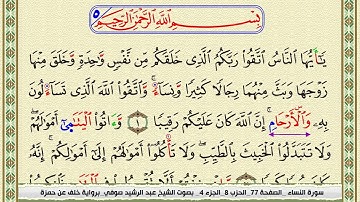 ٥
بِسْمِ اللَّهِ الرَّحْمَٰنِ الرَّحِيمِ
يَٰٓأَيُّهَا النَّاسُ اتَّقُوا رَبَّكُمُ الَّذِى خَلَقَكُم مِّن نَّفْسٍ وَٰحِدَةٍ وَخَلَقَ مِنْهَا
زَوْجَهَا وَبَثَّ مِنْهُمَا رِجَالًا كَثِيرًا وَنِسَآءً وَاتَّقُوا اللَّهَ الَّذِى تَسَآءَلُونَ
بِهِۦ وَالْأَرْحَامِ إِنَّ اللَّهَ كَانَ عَلَيْكُمْ رَقِيبًا ١ وَءَاتُوا الْيَتَٰمَىٰٓ أَمْوَٰلَهُمْ
وَلَا تَتَبَدَّلُوا الْخَبِيثَ بِالطَّيِّبِ وَلَا تَأْكُلُوٓا أَمْوَٰلَهُمْ إِلَىٰٓ أَمْوَٰلِكُمْ إِنَّهُۥ
سورة النساء _ الصفحة 77_ الحزب 8_ الجزء 4 _ بصوت الشيخ عبد الرشيد صوفي _ برواية خلف عن حمزة